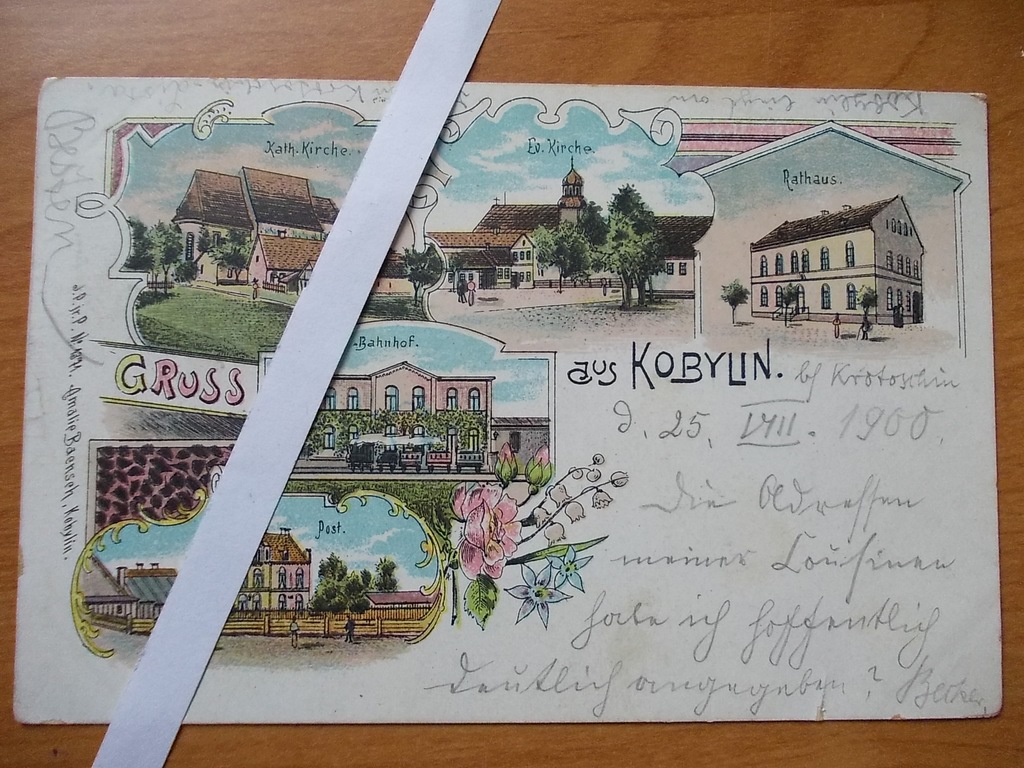 Kobylin liegt am
Kath. Kirche.
Ev. Kirche.
Rathaus.
Bahnhof.
GRUSS aus KOBYLIN. bei Krotoschin
d. 25. VIII. 1900.
Die Adressen
meiner Cousinen
habe ich hoffentlich
deutlich angegeben? Becker
Post.
Amalie Baensch, Kobylin.